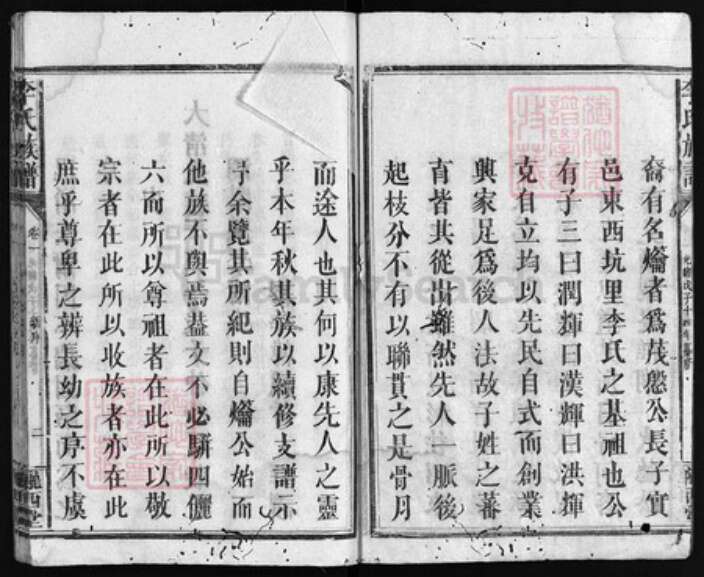 裔有名爚者爲茂懇公長子實
邑東西坑里李氏之基祖也公
有子三曰潤輝曰漢輝曰洪輝
克自立均以先民自式而創業
興家足爲後人法故子姓之蕃
育皆其從出雖然先人一脈後
起枝分不有以聯貫之是骨月
而途人也其何以康先人之靈
乎本年秋其族以續修支譜示
予余覽其所紀則自爚公始而
他族不與焉葢文不必駢四儷
六而所以尊祖者在此所以敬
宗者在此所以收族者亦在此
庶乎尊卑之辨長幼之序不虞
李氏族譜
卷一
二
隴西堂